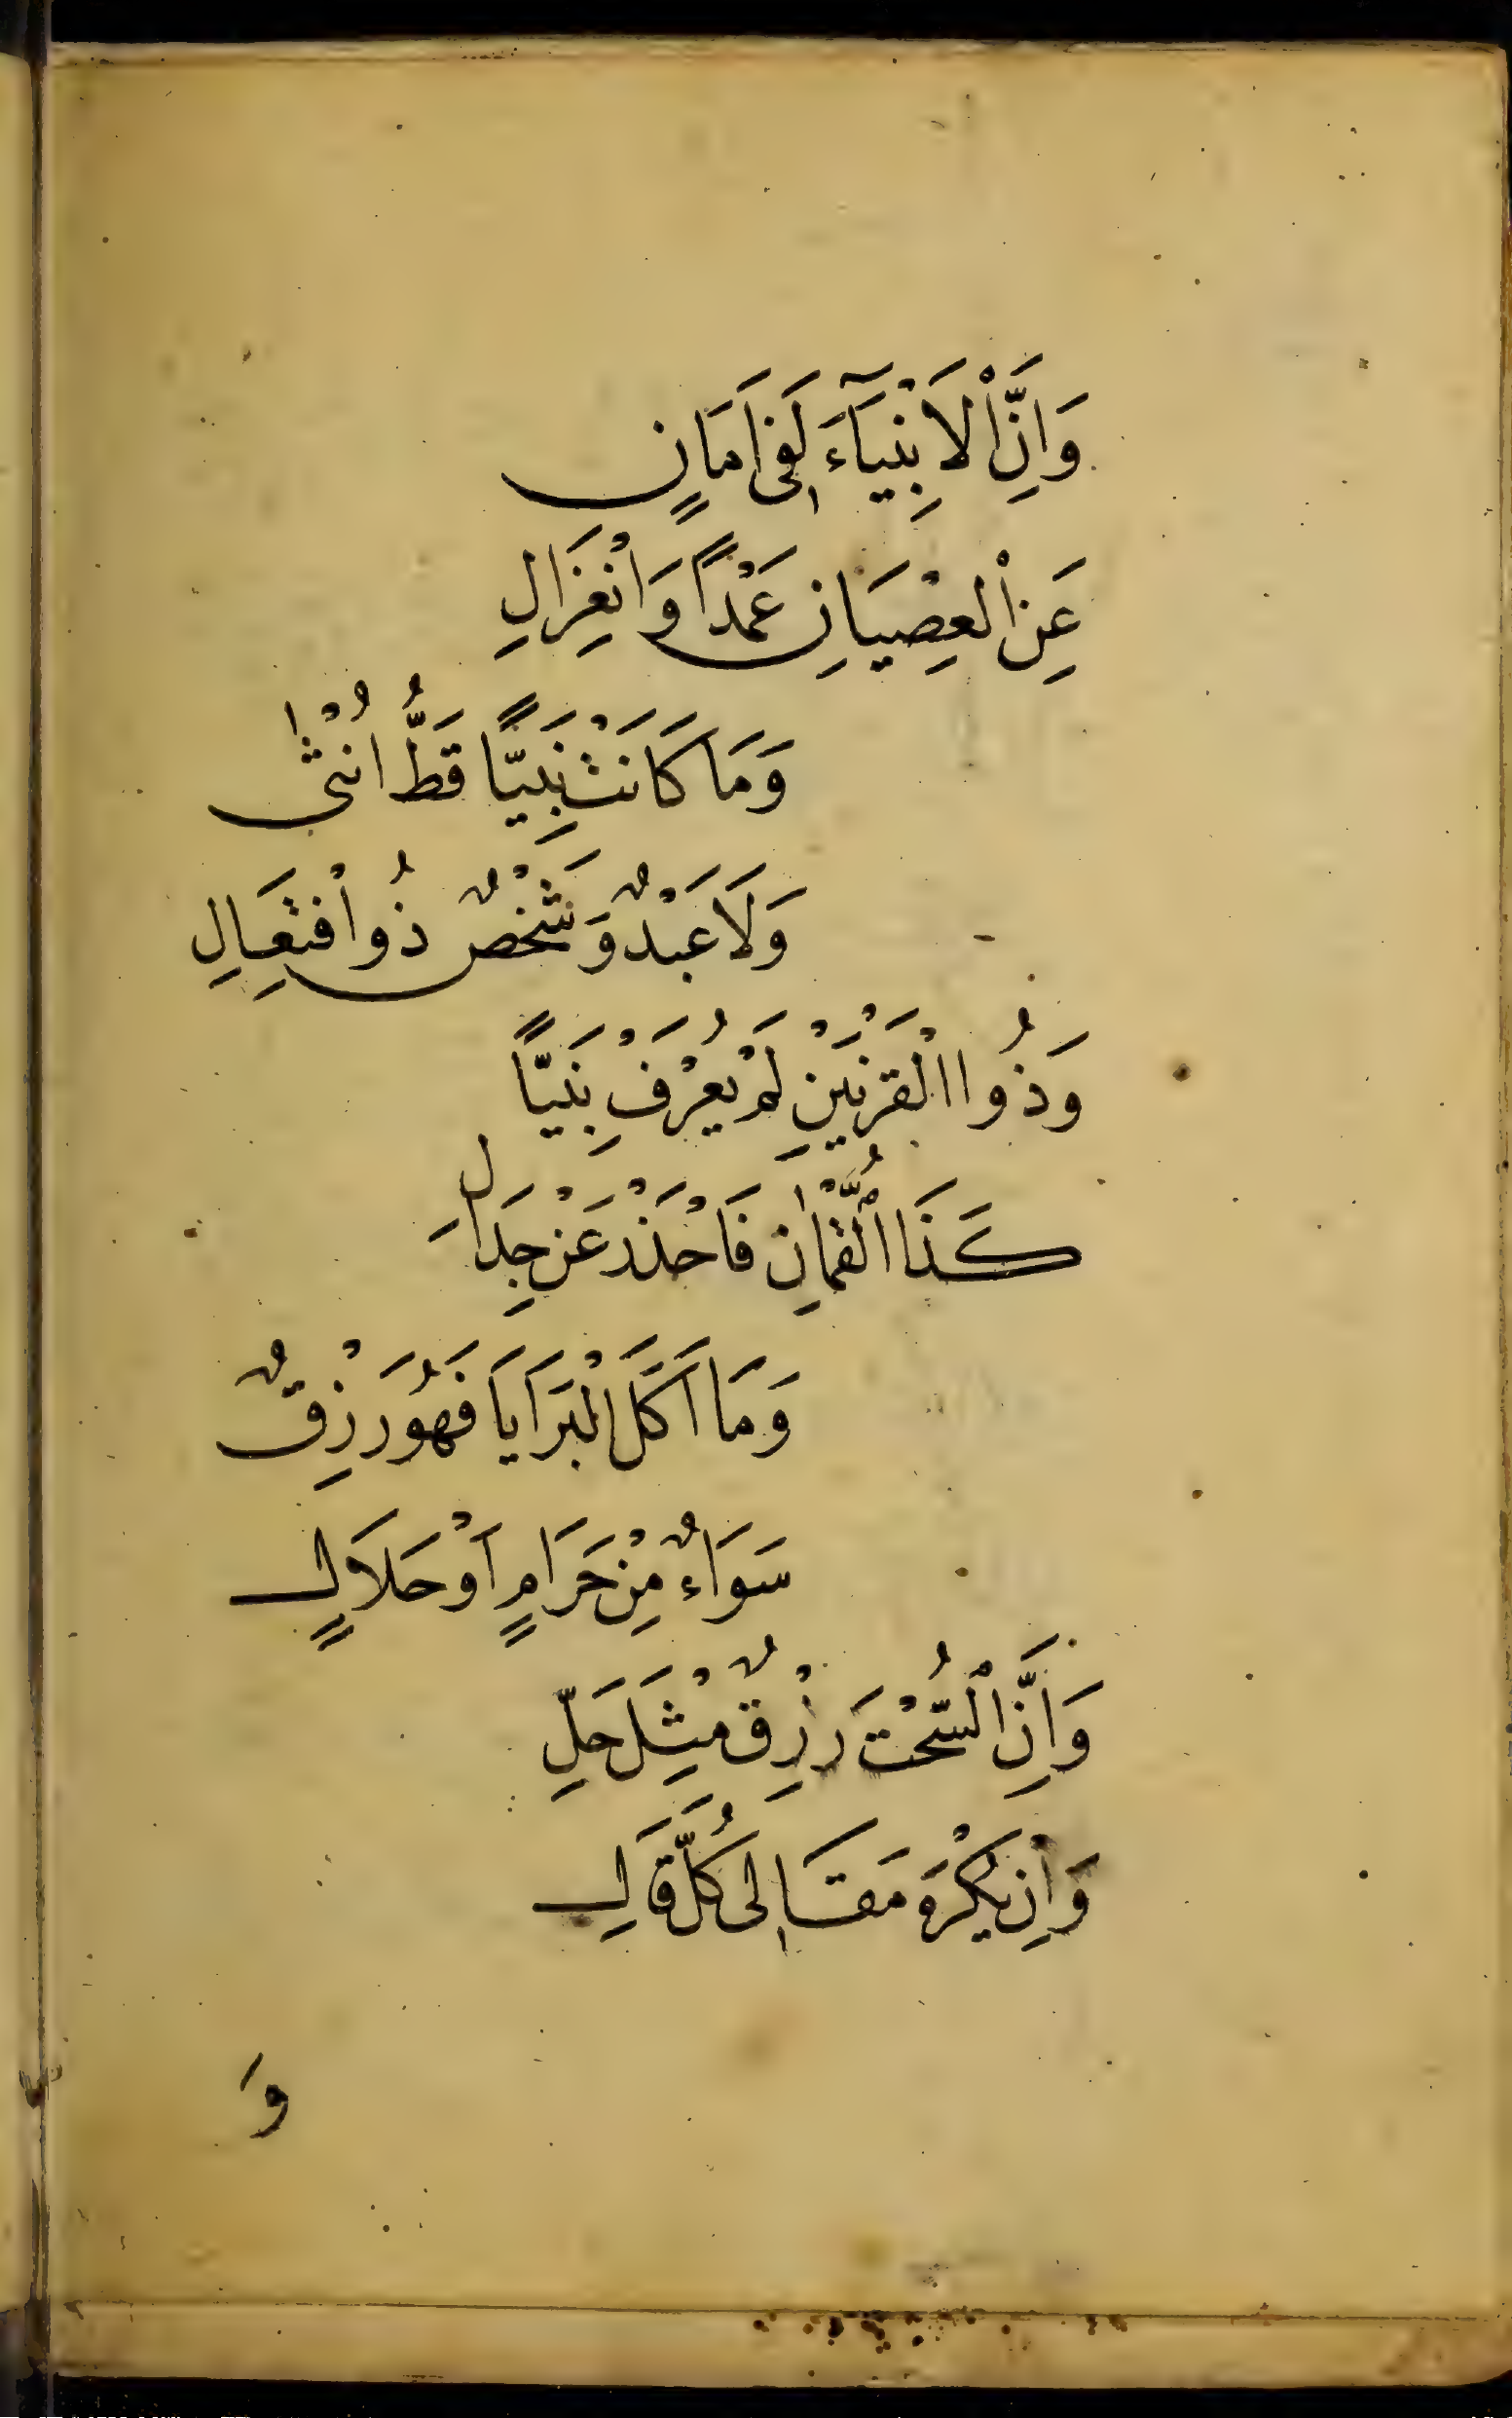 وَاِنَّ اْلاَنْبِيَآءَ لَفٖى اَمَانٍ
عَنِ اْلعِصْيَانِ عَمْدًا وَانْعِزَالِ
وَمَا كَانَتْ نَبِيًّا قَطُّ اُنْثٰى
وَلَا عَبْدٌ وَشَخْصٌ ذُو افْتِعَالِ
وَذُوا اْلقَرْنَيْنِ لَمْ يُعْرَفْ نَبِيًّا
كَذَا الُّقْمٰانِ فَاحْذَرْ عَنْ جِدَالِ
وَمَا اَكَلَ اْلبَرَايَا فَهُوَ رِزْقٌ
سَوَاءٌ مِنْ حَرَامٍ اَوْ حَلَالٍ
وَاِنَّ السُّحْتَ رِزْقٌ مِثْلَ حَلِّ
وَاِنْ يَكْرَهْ مَقَالٖى كُلُّ قَالِ
وَ